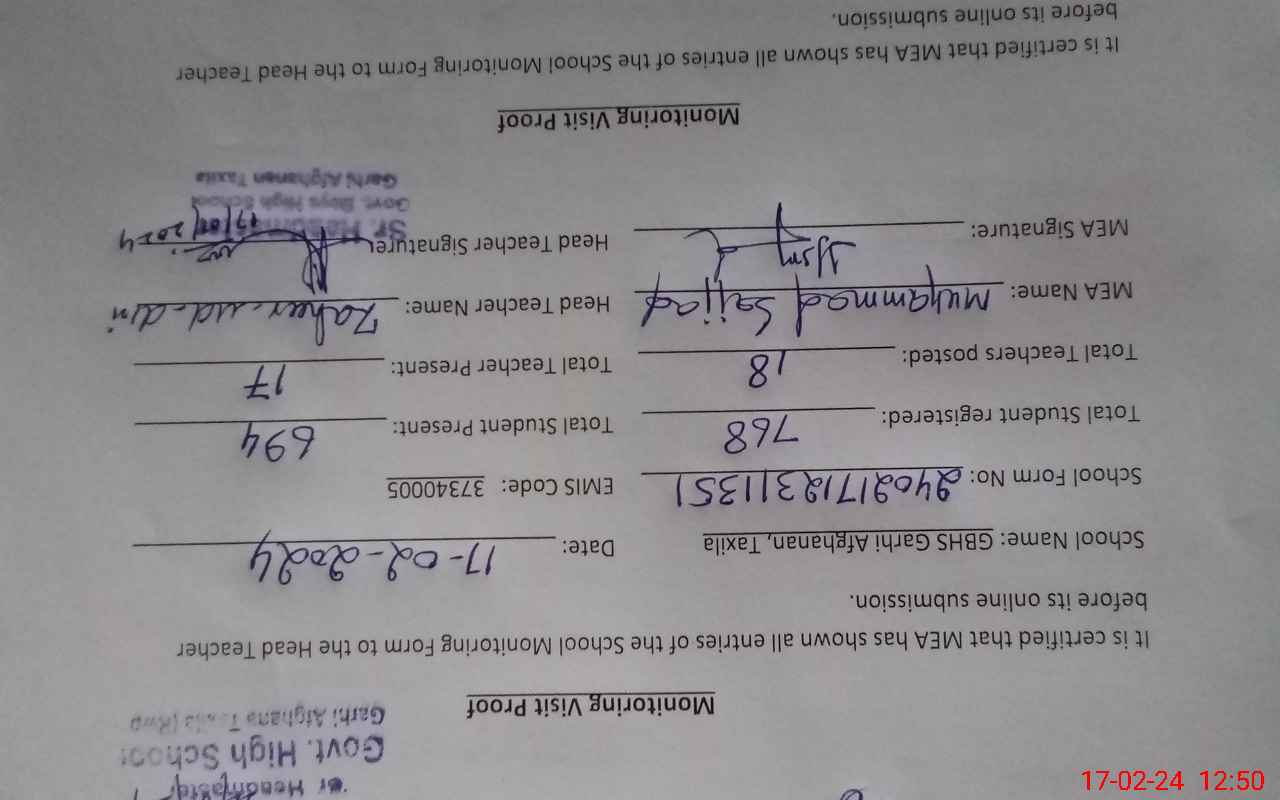 Sr Headmaster
Govt. High School
Garhi Afghana Taxila (Rwp
Monitoring Visit Proof
It is certified that MEA has shown all entries of the School Monitoring Form to the Head Teacher
before its online submission.
School Name: GBHS Garhi Afghanan, Taxila Date: 17-02-2024
School Form No: 240217123111351 EMIS Code: 37340005
Total Student registered: 768 Total Student Present: 694
Total Teachers posted: 18 Total Teacher Present: 17
MEA Name: Muhammad Sajjad Head Teacher Name: Zaheer-ud-din
MEA Signature: Head Teacher Signature:
17/02/2024
Govt. Boys High School
Garhi Afghanan Taxila
Monitoring Visit Proof
It is certified that MEA has shown all entries of the School Monitoring Form to the Head Teacher
before its online submission.
17-02-24 12:50